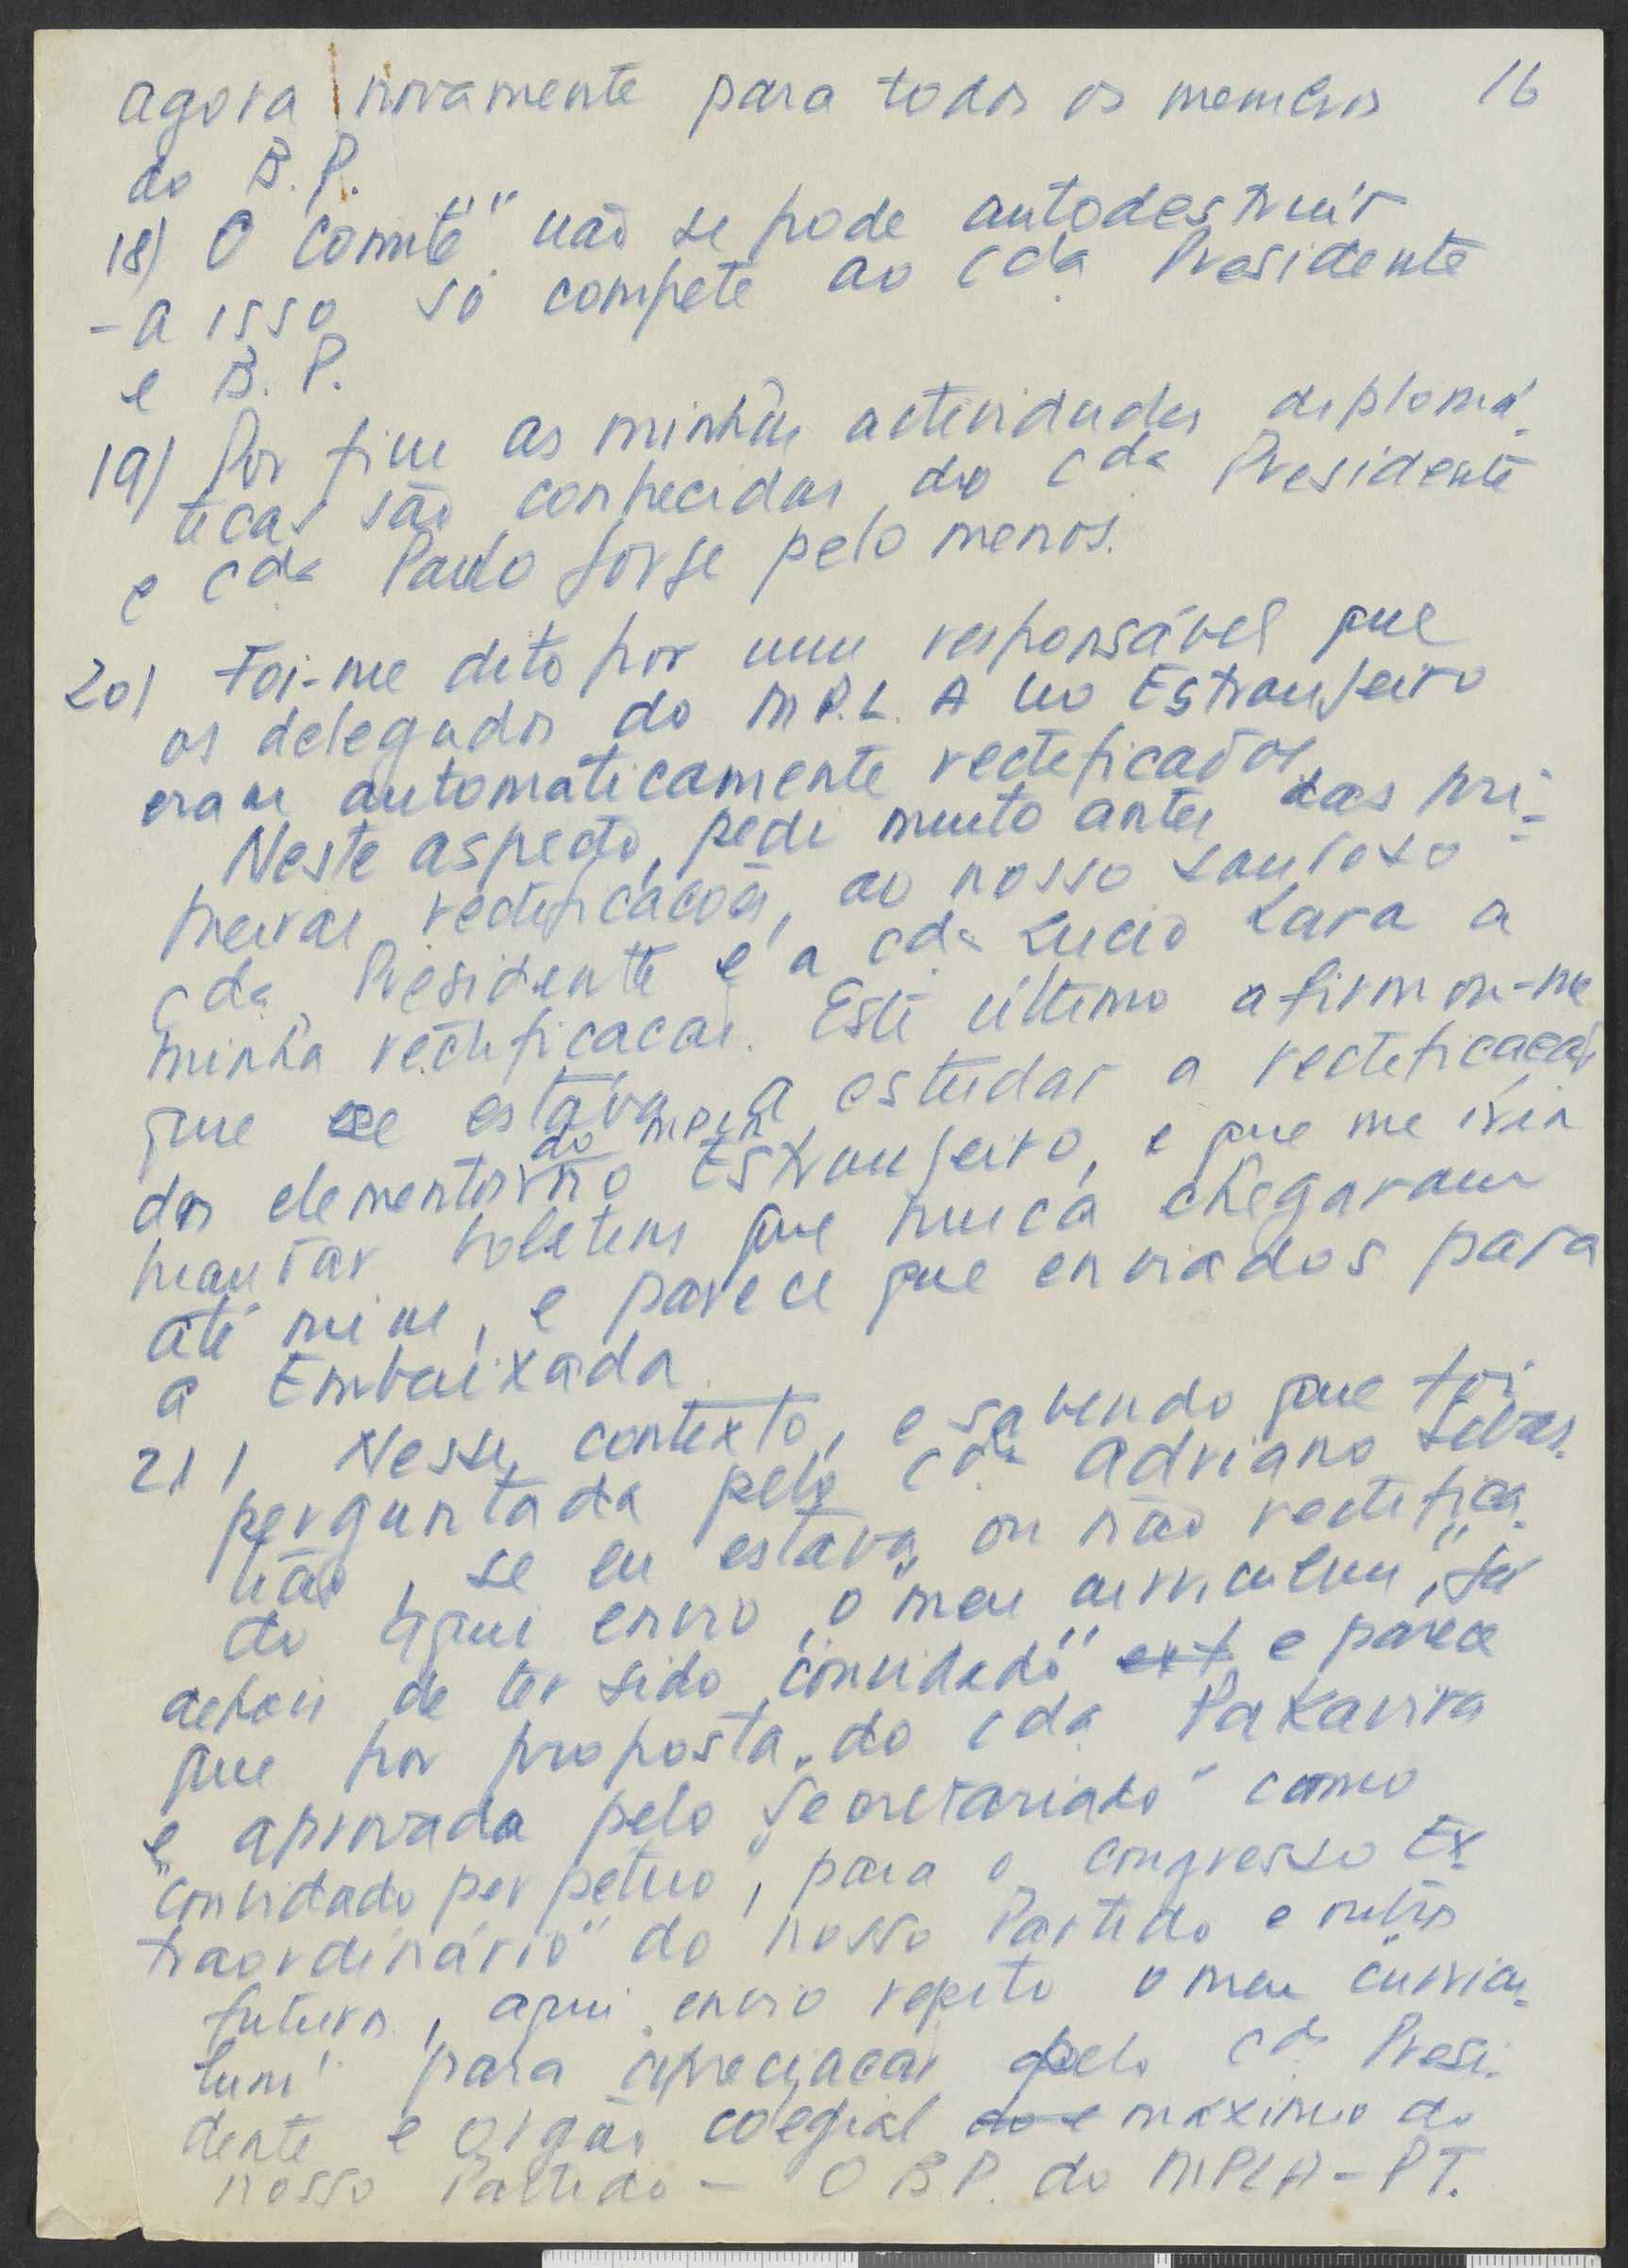 agora novamente para todos os membros 16
do B.P.
18) O "comité" não se pode autodestruir
- a isso só compete ao cda Presidente
e B.P.
19) Por fim as minhas actividades diplomá-
ticas são conhecidas do cda Presidente
e cda Paulo Jorge pelo menos.
20) Foi-me dito por um responsável que
os delegados do M.P.L.A no Estranjeiro
eram automáticamente rectificados.
Neste aspecto, pedi muito antes das pri-
meiras rectificacoes, ao nosso saudoso
cda Presidente e a cda Lucio Lara a
minha rectificacao. Este último afirmou-me
que se estava a estudar a rectificacão
dos elementos do MPLA no Estranjeiro, e que me iria
mandar boletins que nunca chegaram
até mim, e parece que enviados para
a Embaixada.
21) Nesse contexto, e sabendo que foi
perguntada pelo cda Adriano Sebas-
tião, se eu estava ou não rectifica-
do aqui envio o meu "curriculum", já
depois de ter sido "convidado" ext e parece
que por proposta do cda Pakavira
e aprovada pelo "Secretariado" como
"convidado perpetuo", para o congresso Ex-
traordinário" do nosso Partido e outros
futuros, aqui envio repito o meu "curricu-
lum" para apreciacao pelo cda Presi-
dente e orgão colegial do e máximo do
nosso Partido - O B.P. do MPLA - PT.